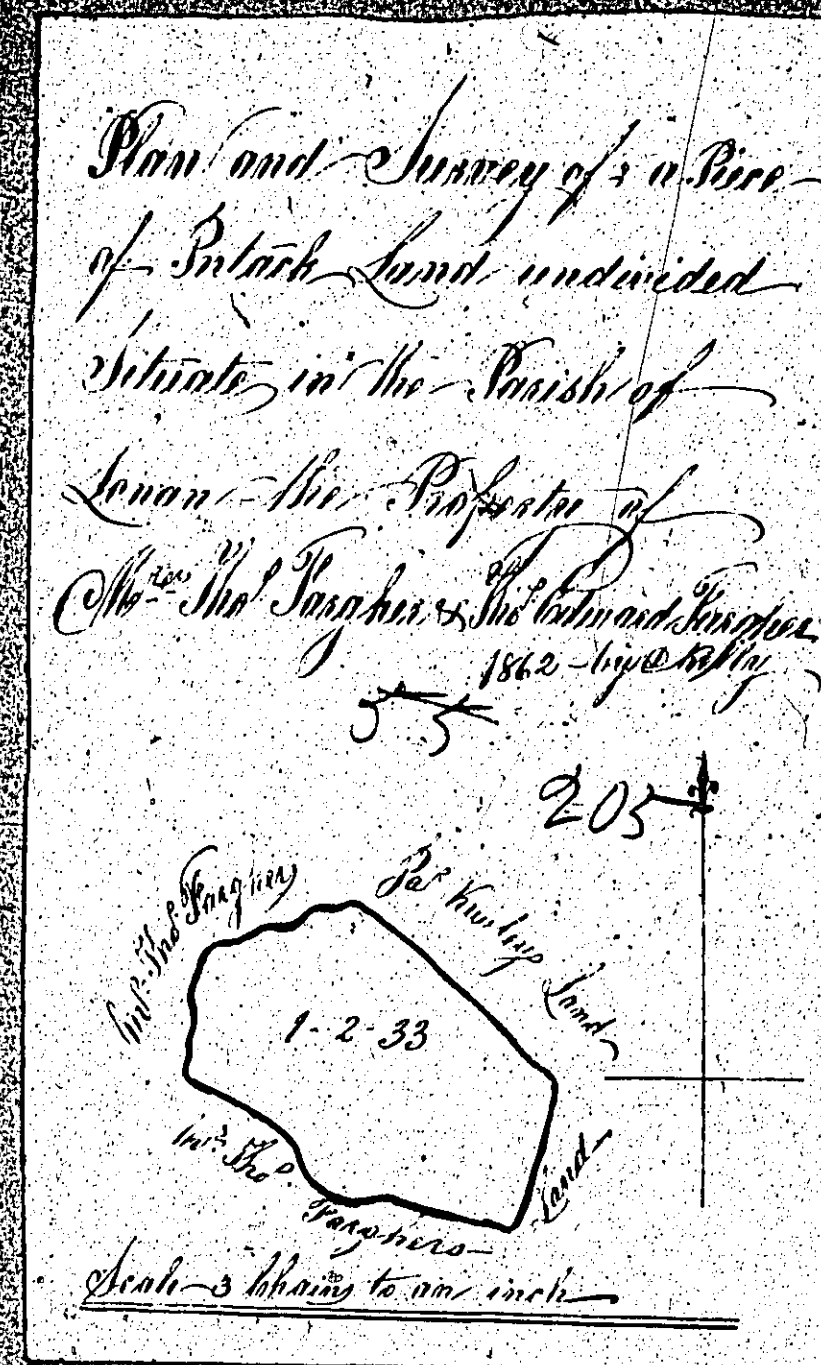 Plan and Survey of a Piece
of Intack Land undivided
Situate in the Parish of
Lonan the Property of
Mr Thos Fargher & Thos Edward Fargher
1862 by Kelly
55
205
Thos Farghers
Pat Land
1-2-33
Thos
Farghers
Land
Scale 3 Chains to an inch